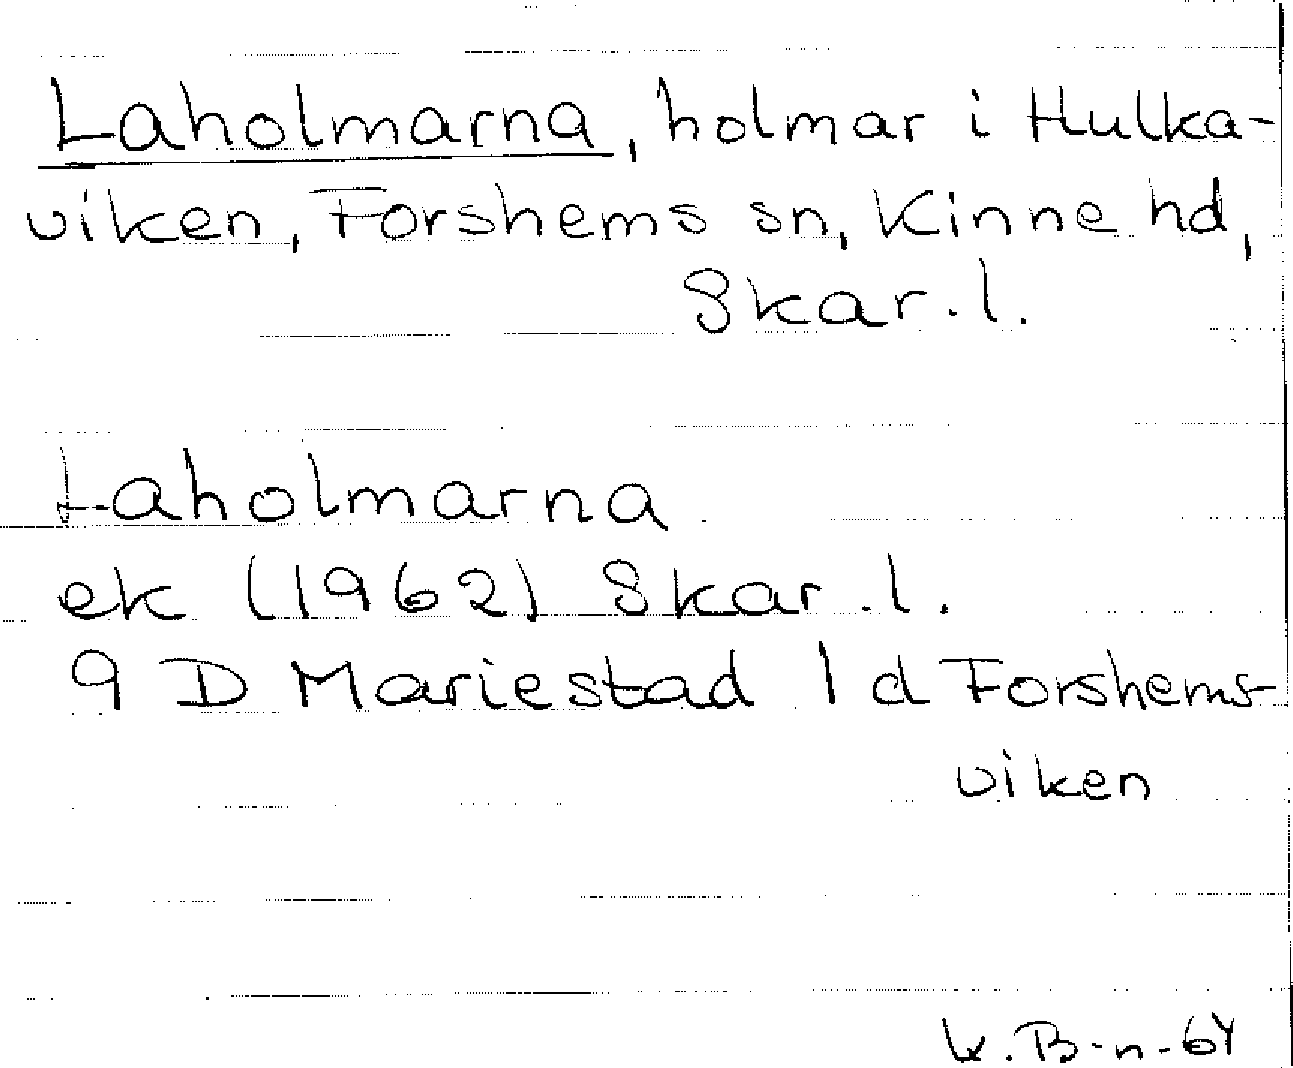 Laholmarna, holmar i Hulka-
viken, Forshems sn, Kinne hd,
Skar.l.
Laholmarna
ek (1962) Skar.l.
9 D Mariestad 1 d Forshems-
viken
K.B-n-64